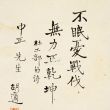 不眠憂戰伐
無力正乾坤
杜工部的詩
中正先生
胡適